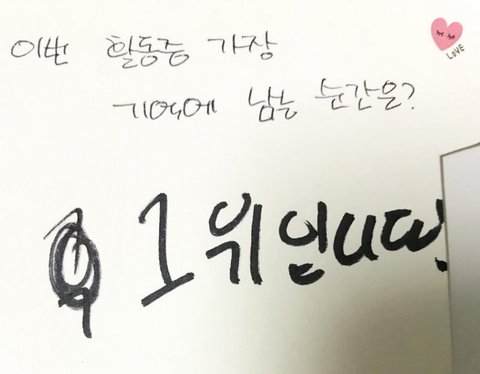 이번 활동중 가장
LOVE
기억에 남는 순간은?
1위입니다.